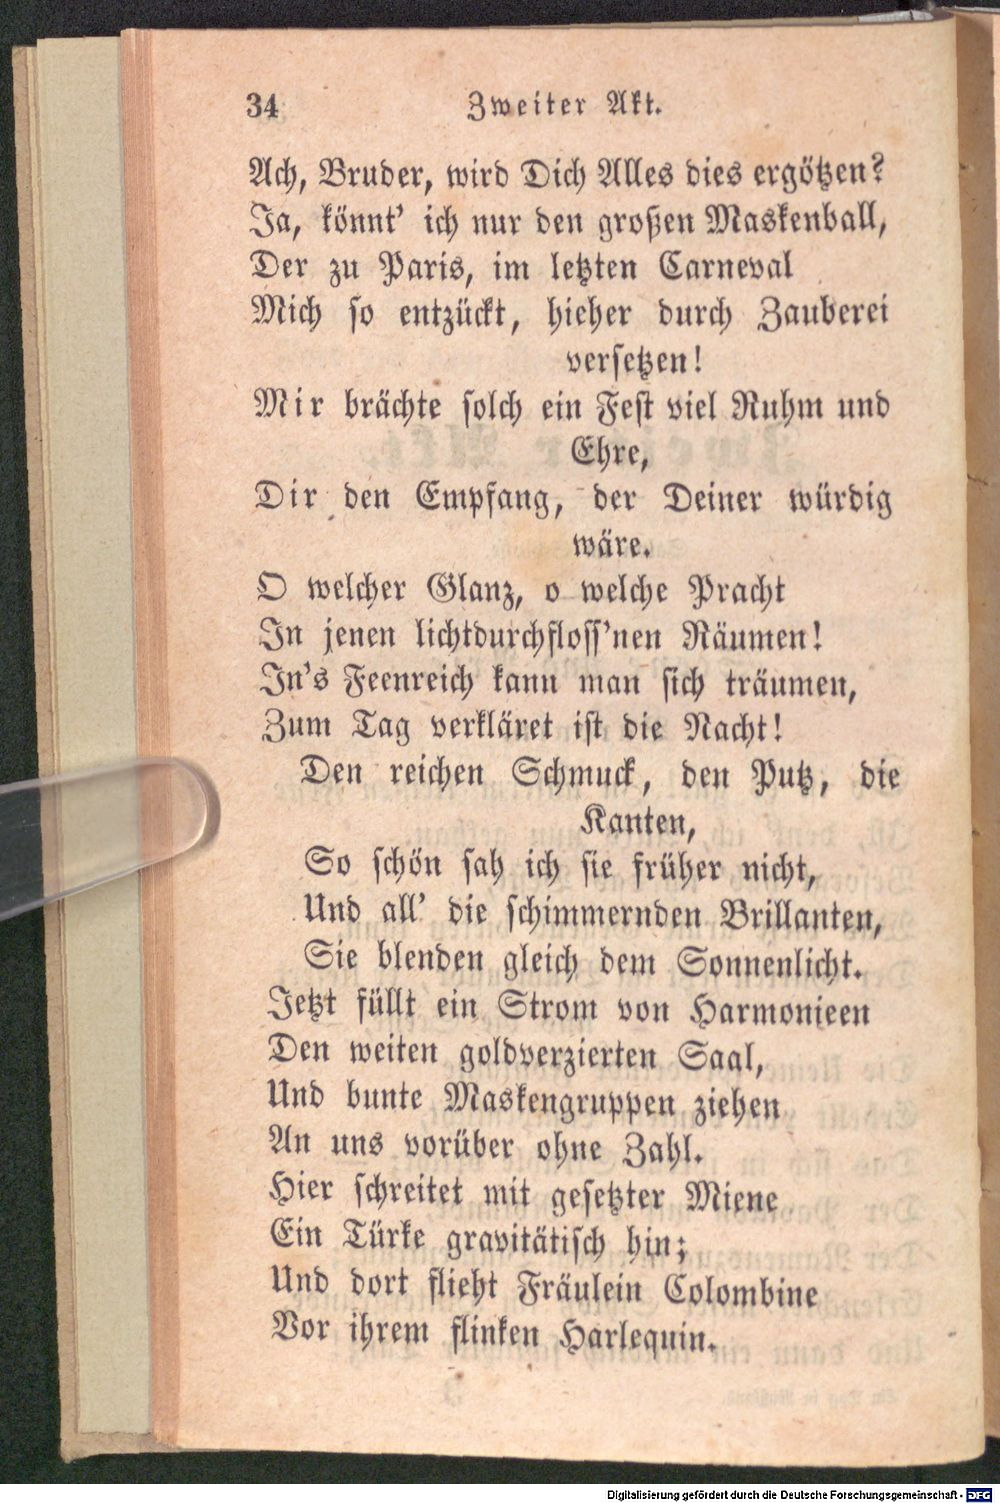 34
Zweiter Akt.
Ach, Bruder, wird Dich Alles dies ergötzen?
Ja, könnt' ich nur den großen Maskenball,
Der zu Paris, im letzten Carneval
Mich so entzückt, hieher durch Zauberei
versetzen!
Mir brächte solch ein Fest viel Ruhm und
Ehre,
Dir den Empfang, der Deiner würdig
wäre.
O welcher Glanz, o welche Pracht
In jenen lichtdurchfloss'nen Räumen!
In's Feenreich kann man sich träumen,
Zum Tag verkläret ist die Nacht!
Den reichen Schmuck, den Putz, die
Kanten,
So schön sah ich sie früher nicht,
Und all' die schimmernden Brillanten,
Sie blenden gleich dem Sonnenlicht.
Jetzt füllt ein Strom von Harmonieen
Den weiten goldverzierten Saal,
Und bunte Maskengruppen ziehen
An uns vorüber ohne Zahl.
Hier schreitet mit gesetzter Miene
Ein Türke gravitätisch hin;
Und dort flieht Fräulein Colombine
Vor ihrem flinken Harlequin.
Digitalisierung gefördert durch die Deutsche Forschungsgemeinschaft - DFG